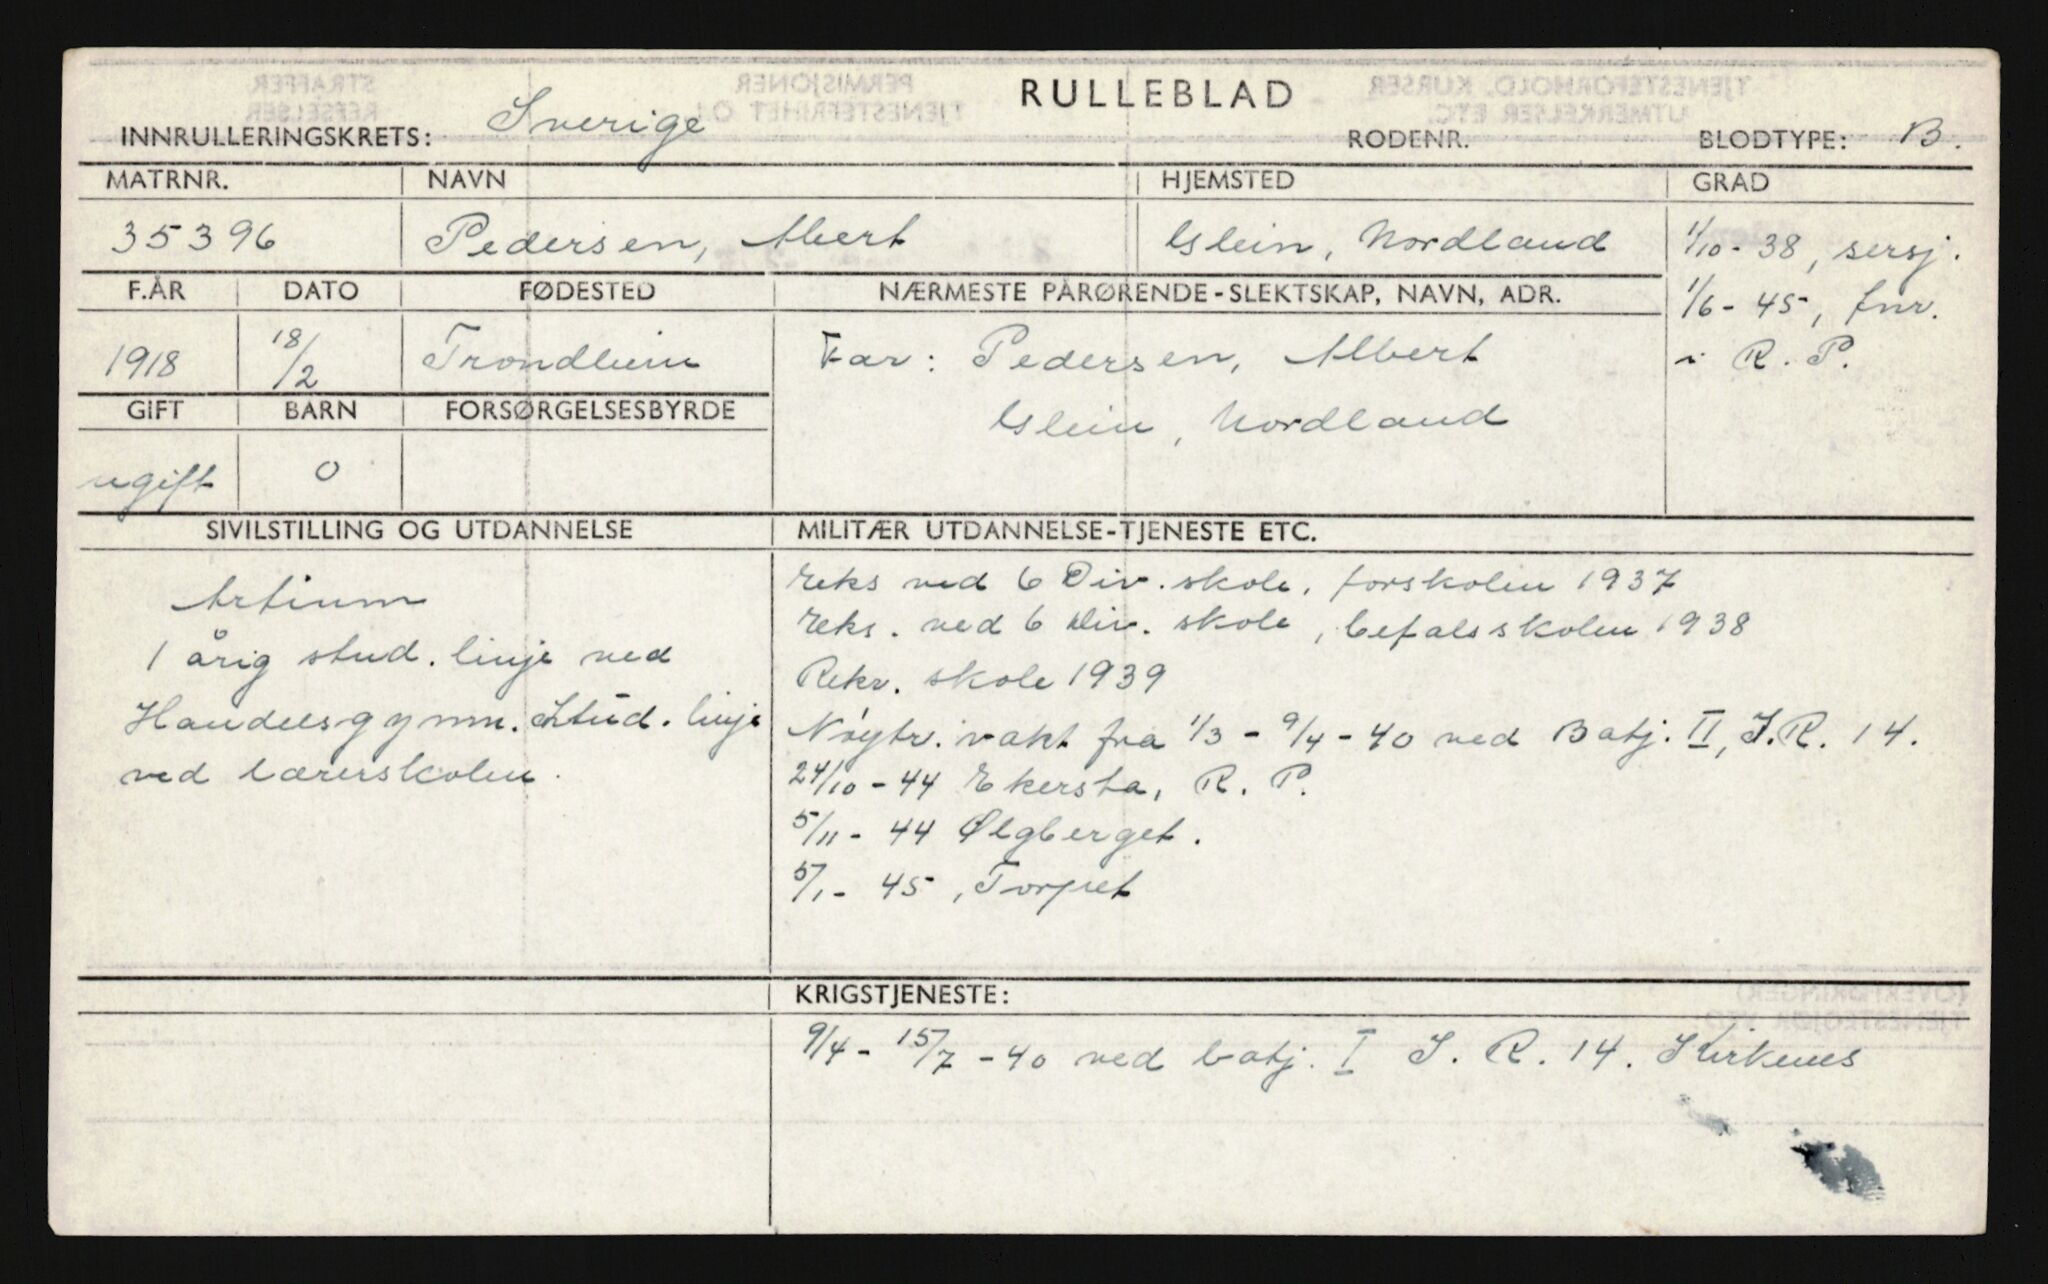 RULLEBLAD
INNRULLERINGSKRETS: Sverige RODENR. BLODTYPE: B.
MATRNR. NAVN HJEMSTED GRAD
35396 Pedersen, Albert Glein, Nordland 1/10-38, sersj.
F.ÅR DATO FØDESTED NÆRMESTE PÅRØRENDE-SLEKTSKAP, NAVN, ADR.
1/6-45, fnr.
1918 18/2 Trondheim Far: Pedersen, Albert i R. P.
GIFT BARN FORSØRGELSESBYRDE
Glein, Nordland
ugift 0
SIVILSTILLING OG UTDANNELSE
Artium
1 årig stud. linje ved
Handelsgymn. Stud. linje
ved lærerskolen.
MILITÆR UTDANNELSE-TJENESTE ETC.
Eks ved 6 Div. skole, forskolen 1937
Eks. ved 6 Div. skole, befalsskolen 1938
Rekr. skole 1939
Nøytr. vakt fra 1/3 - 9/4 - 40 ved Batj. II, I.R. 14.
24/10 - 44 Ekersta, R. P.
5/11 - 44 Ølgberget.
5/1 - 45, Torpet
KRIGSTJENESTE:
9/4 - 15/7 - 40 ved batj. I I. R. 14. Kirkenes
STRAFFER
REFSELSER
PERMISJONER
TJENESTEFRIHET O.L
TJENESTEFORHOLD, KURSER
UTMERKELSER ETC.
(OVERFØRINGER)